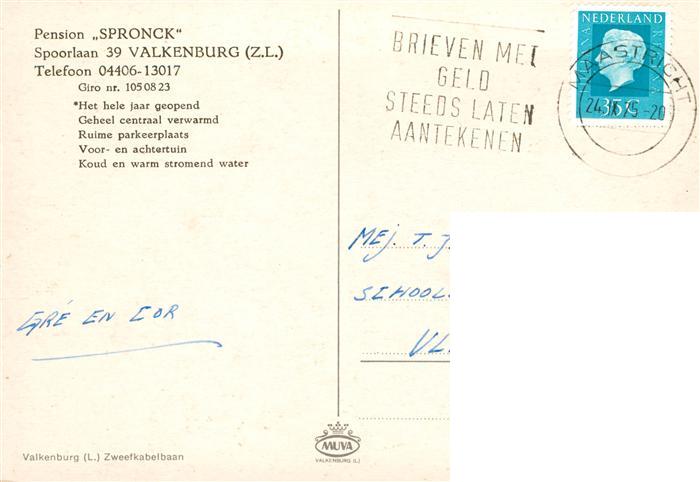 Pension „SPRONCK"
Spoorlaan 39 VALKENBURG (Z.L.)
Telefoon 04406-13017
Giro nr. 1050823
*Het hele jaar geopend
Geheel centraal verwarmd
Ruime parkeerplaats
Voor- en achtertuin
Koud en warm stromend water
BRIEVEN MET
GELD
STEEDS LATEN
AANTEKENEN
NEDERLAND
JULIANA REGINA
35c
MAASTRICHT
MEJ. T. J.
SCHOOL
VL
GRÉ EN COR
MUVA
VALKENBURG (L)
Valkenburg (L.) Zweefkabelbaan